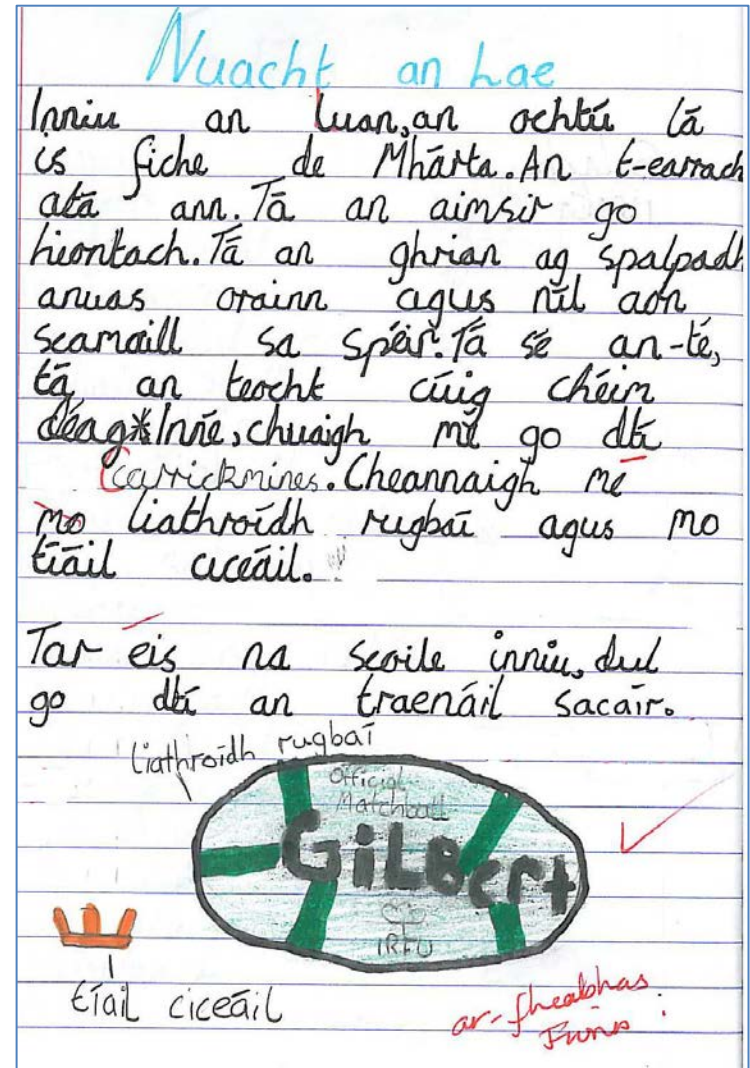 Nuacht an Lae
Inniu an Luan, an ochtú lá
is fiche de Mhárta. An t-earrach
atá ann. Tá an aimsir go
hiontach. Tá an ghrian ag spalpadh
anuas orainn agus níl aon
scamaill sa spéir. Tá sé an-te,
tá an teocht cúig chéim
déag* Inné, chuaigh mé go dtí
Carrickmines. Cheannaigh mé
mo liathróidh rugbaí agus mo
tíáil ciceáil.
Tar éis na scoile inniu, dul
go dtí an traenáil sacair.
liathroídh rugbaí
Official
Matchball
GiLBert
IRFU
tíáil ciceáil
ar-fheabhas